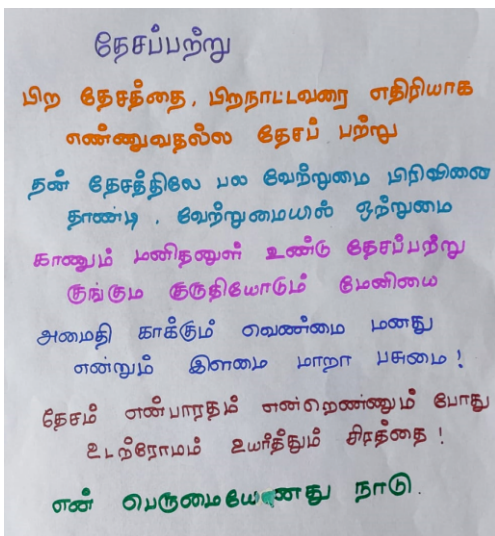 தேசப்பற்று
பிற தேசத்தை, பிறநாட்டவரை எதிரியாக
எண்ணுவதல்ல தேசப் பற்று
தன் தேசத்திலே பல வேற்றுமை பிரிவினை
தாண்டி, வேற்றுமையில் ஒற்றுமை
காணும் மனிதனுள் உண்டு தேசப்பற்று
குங்கும குருதியோடும் மேனியை
அமைதி காக்கும் வெண்மை மனது
என்றும் இளமை மாறா பசுமை!
தேசம் என்பாரதம் என்றெண்ணும் போது
உடற்ரோமம் உயர்த்தும் சிரத்தை!
என் பெருமையேனது நாடு.